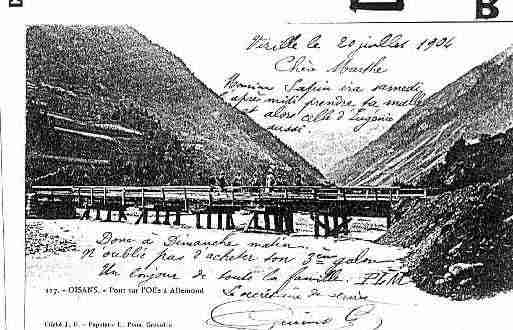 Vizille le 20 juillet 1904
Chère Marthe
Monsieur Sapin ira samedi
après midi prendre ta malle
et alors celle d'Eugénie
aussi
Donc à Dimanche matin.
N'oublie pas d'acheter son 3ème galon
Un bonjour de toute la famille. PLM
Le secrétaire de service
117. - OISANS. - Pont sur l'Olle à Allemond
Cliché J. B. - Papeterie L. Grenoble
B